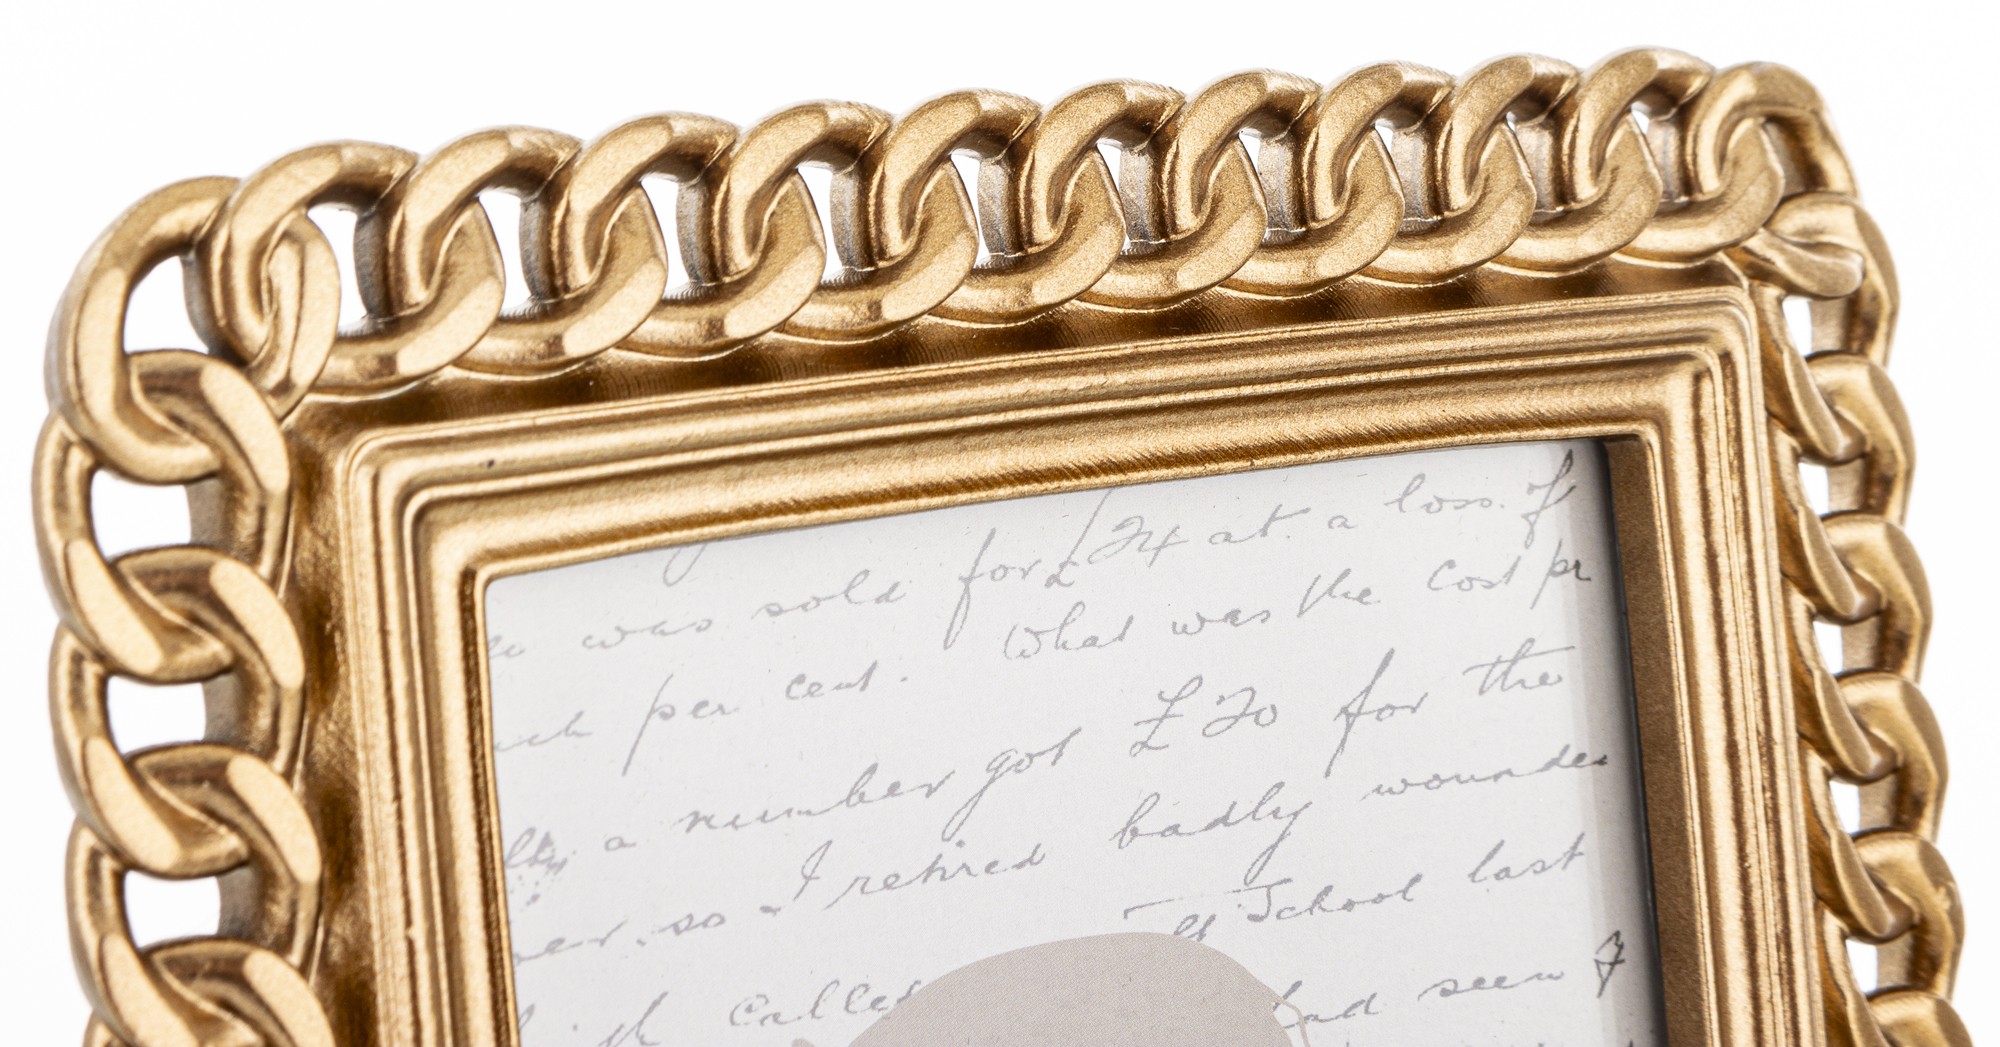 was sold for £24 at a loss. of
per cent. What was the cost pr
a number got £20 for the
so I retired badly wounde
School last
Called had seen